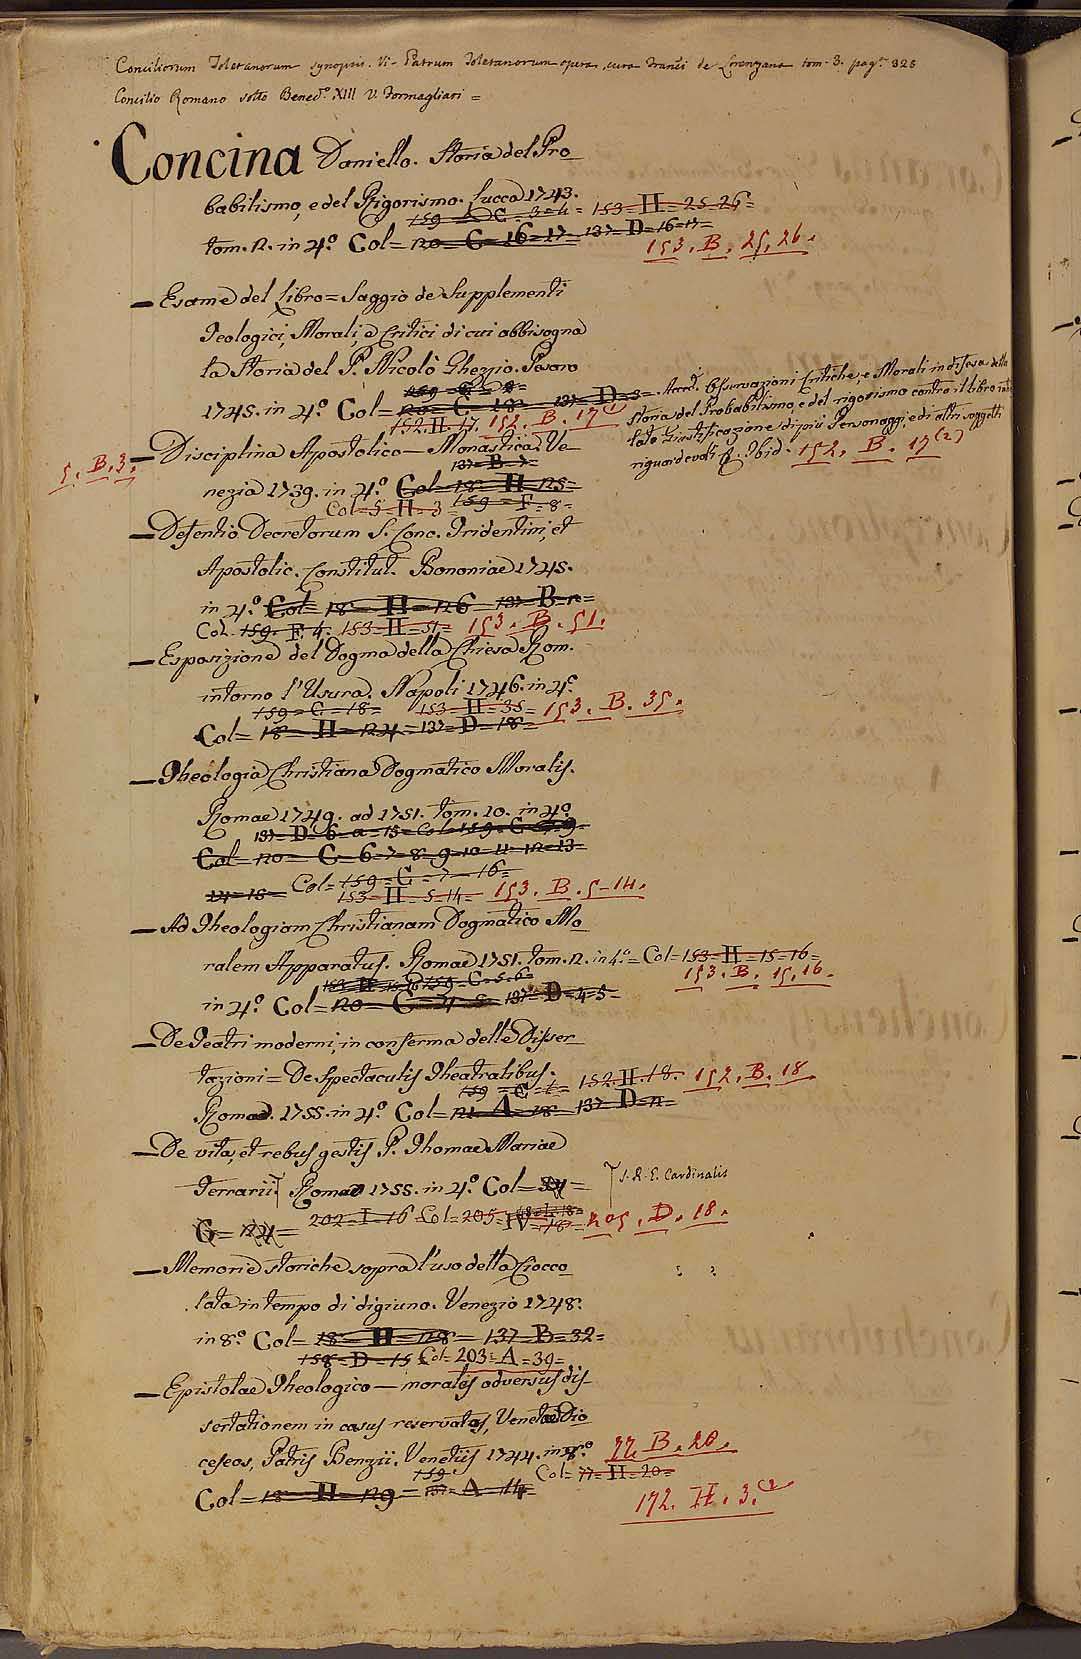 Conciliorum Toletanorum synopsis. Vi- Patrum Toletanorum opera, cura Franci de Lorenzana tom. 3. pag. 328
Concilio Romano sotto Bened.o XIII V. Formagliari =
Concina Daniello. Storia del Pro
babilismo, e del Rigorismo. Lucca 1743.
159 = C = 3=4 = 153=H=25-26=
tom. 2. in 4.o Col= 120=C=16=17= 137=D=16=17=
153. B. 25. 26.
— Esame del Libro= Saggio de Supplementi
Teologici, Morali, e Critici di cui abbisogna
la Storia del P. Nicolò Ghezio. Pesaro
1745. in 4.o Col= 120=C=18= 137=D=3=
152. H. 17. 152. B. 17 (1)
Acced. Osservazioni Critiche, e Morali in difesa della
storia del Probabilismo, e del rigorismo contro il libro inti
lato Giustificazione di più Personaggi, e di altri soggetti
riguardevoli &. Ibid. 152. B. 17 (2)
5. B. 3.
— Disciplina Apostolico — Monastica. Ve-
137=B=7=
nezia 1739. in 4.o Col=18=H=125=
Col=5=H=3 159=F=8=
— Defentio Decretorum S. Conc. Tridentini, et
Apostolic. Constitut. Bononiae 1745.
in 4.o Col= 18=H=126=137=B=12=
Col. 159. F. 4. 153=H=51= 153. B. 51.
— Esposizione del Dogma della Chiesa Rom.
intorno l'Usura. Napoli 1746. in 4.o
159=C=18= 153=H=35= 153. B. 35.
Col= 18=H=124=137=D=18=
— Theologia Christiana Dogmatico Moralis.
Romae 1749. ad 1751. tom. 10. in 4.o
137=D=6=a=15=Col=159=C=
Col=120=C=6=7=8=9=10=11=12=13=
14=15= Col=159=C=7=16=
153=H=5=14= 153. B. 5-14.
— Ad Theologiam Christianam Dogmatico Mo
ralem Apparatus. Romae 1751. tom. 2. in 4.o= Col=153=H=15=16=
153. B. 15. 16.
159=C=5=6=
in 4.o Col=120=C=4=5= 137=D=4=5=
— De Teatri moderni, in conferma delle Disser
tazioni= De Spectaculis Theatralibus.
159=C=1= 152. H. 18. 152. B. 18
Romae. 1755. in 4.o Col=121=A=28= 137=D=12=
— De vita, et rebus gestis P. Thomae Mariae
Ferrarii Romae 1755. in 4.o Col=
S. R. E. Cardinalis
G=124= 202=I=16 Col=205=IV=18= 205. D. 18.
— Memorie storiche sopra l'uso della Ciocco
lata in tempo di digiuno. Venezia 1748.
in 8.o Col= 18=H=128= 137=B=32=
158=D=15 Col= 203=A=39=
— Epistolae Theologico — morales adversus dis
sertationem in casus reservatos, Venetae Dio
ceseos, Patris Benzii. Venetiis 1744. in 8.o 77. B. 20.
159 Col= 77=H=20=
Col=18=H=129= 137=A=14=
172. H. 3. (2)